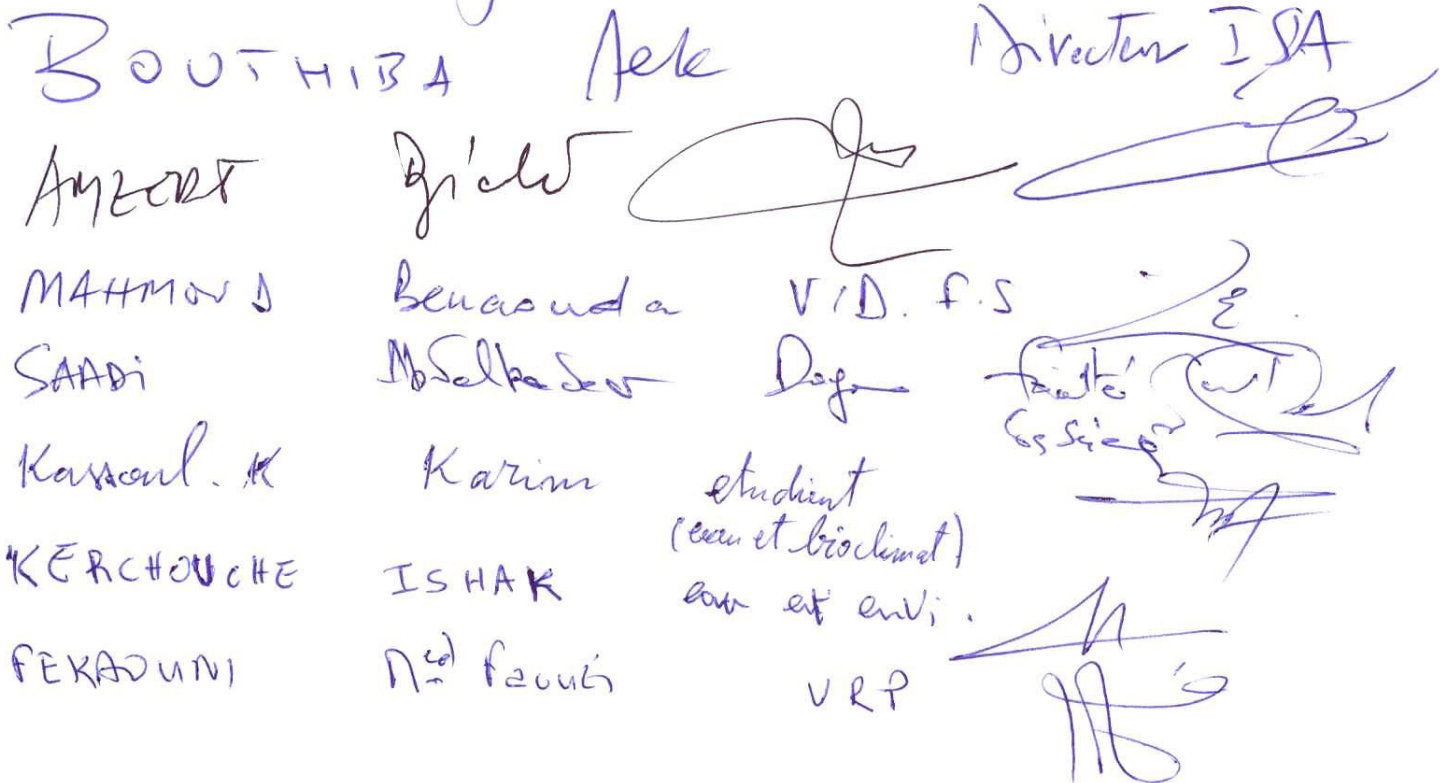 BOUTHIBA Aek Directeur ISA
AMZERT
MAHMOUD Benaouda V/D. F.S
SAADi Abdelkader Doyen
Kassoul. K Karim etudient
(eau et bioclimat)
KERCHOUCHE ISHAK eau et envi.
FEKAOUNI Med VRP